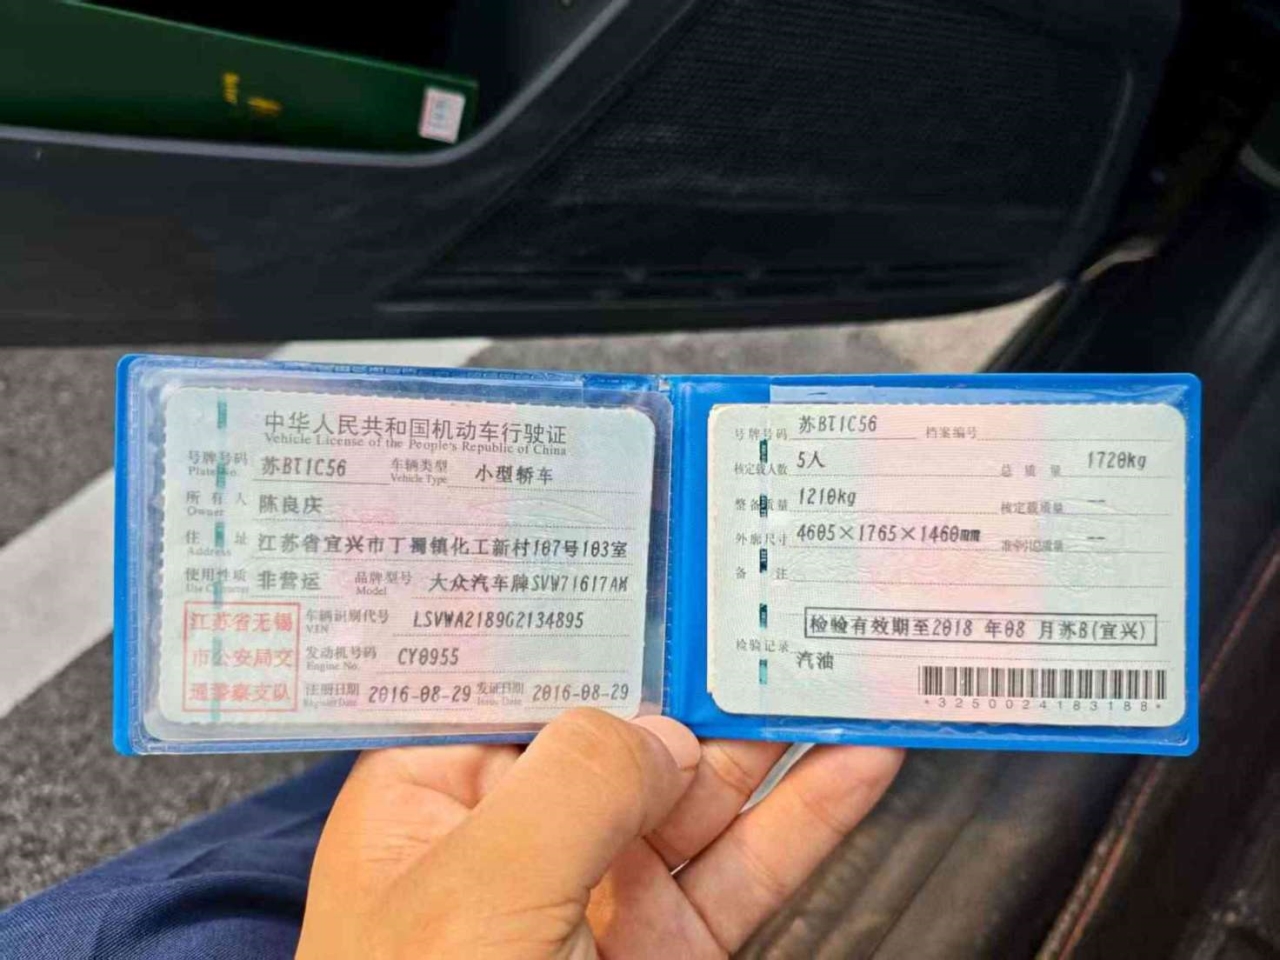 中华人民共和国机动车行驶证
Vehicle License of the People's Republic of China
号牌号码 苏BT1C56 车辆类型 小型轿车
Plate No. Vehicle Type
所有人 陈良庆
Owner
住址 江苏省宜兴市丁蜀镇化工新村107号103室
Address
使用性质 非营运 品牌型号 大众汽车牌SVW71617AM
Use Character Model
江苏省无锡
市公安局交
通警察支队
车辆识别代号 LSVWA2189G2134895
VIN
发动机号码 CY0955
Engine No.
注册日期 2016-08-29 发证日期 2016-08-29
Register Date Issue Date
号牌号码 苏BT1C56 档案编号
核定载人数 5人 总质量 1720kg
整备质量 1210kg 核定载质量 --
外廓尺寸 4605×1765×1460mm 准牵引总质量 --
备注
检验有效期至2018 年08 月苏B(宜兴)
检验记录
汽油
*3250024183188*